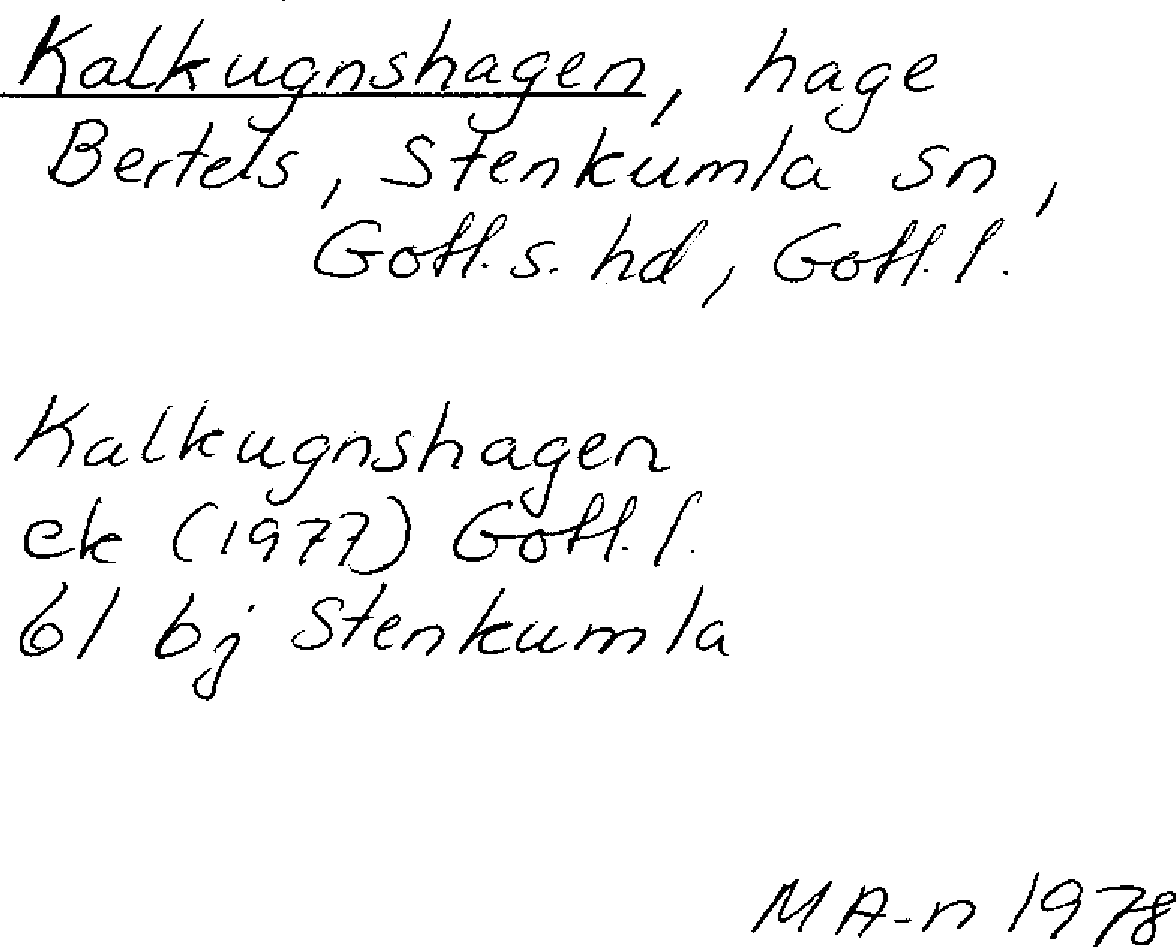 Kalkugnshagen, hage
Bertels, Stenkumla sn,
Gotl. s. hd, Gotl. l.
Kalkugnshagen
ek (1977) Gotl. l.
61 bj Stenkumla
MA-n 1978